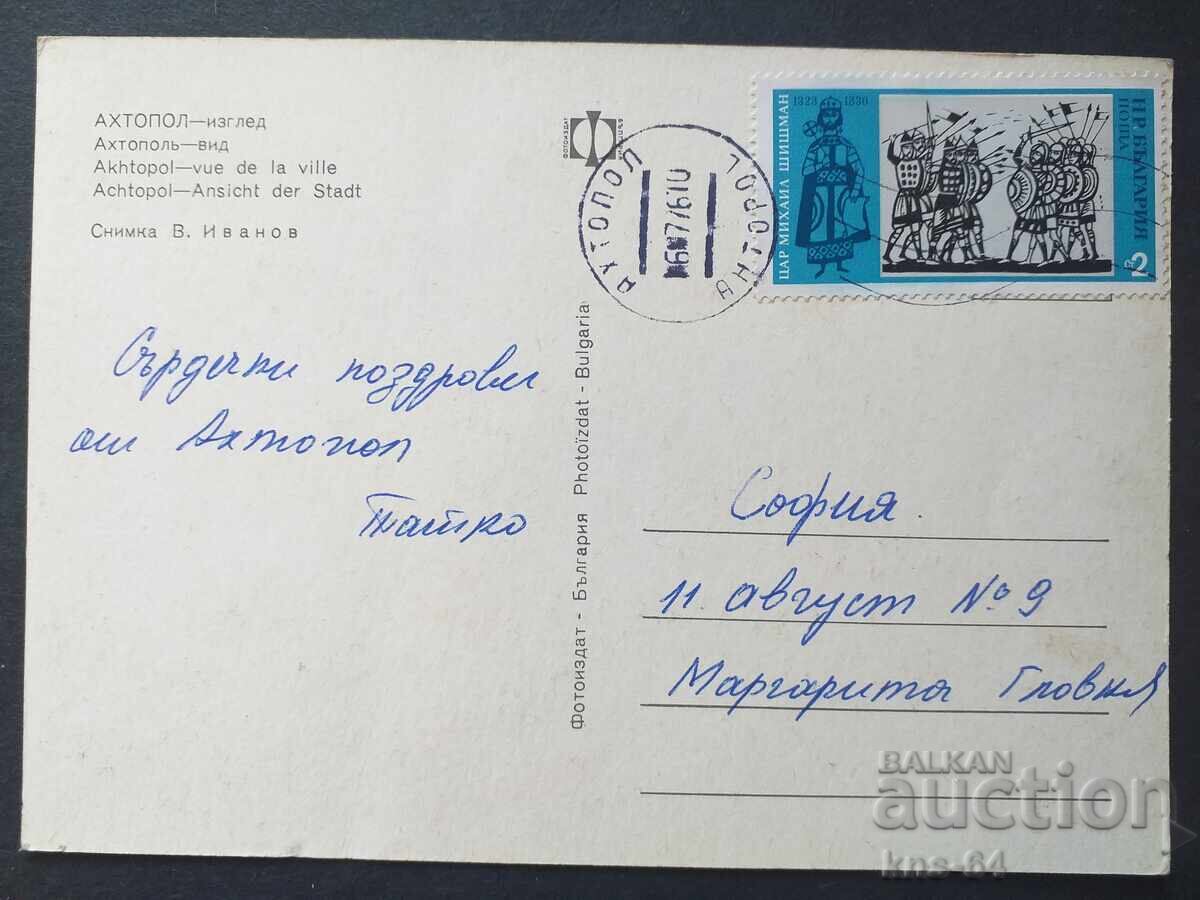 АХТОПОЛ—изглед
Ахтополь—вид
Akhtopol—vue de la ville
Achtopol—Ansicht der Stadt
Снимка В. Иванов
Сърдечни поздрови
от Ахтопол
Татко
Фотоиздат - България Photoïzdat - Bulgaria
ФОТОИЗДАТ
АХТОПОЛ
ЦАР МИХАИЛ ШИШМАН
1323 1330
НР БЪЛГАРИЯ
ПОЩА
2 СТ
София.
11. август № 9
Маргарита
BALKAN
auction
kns-64